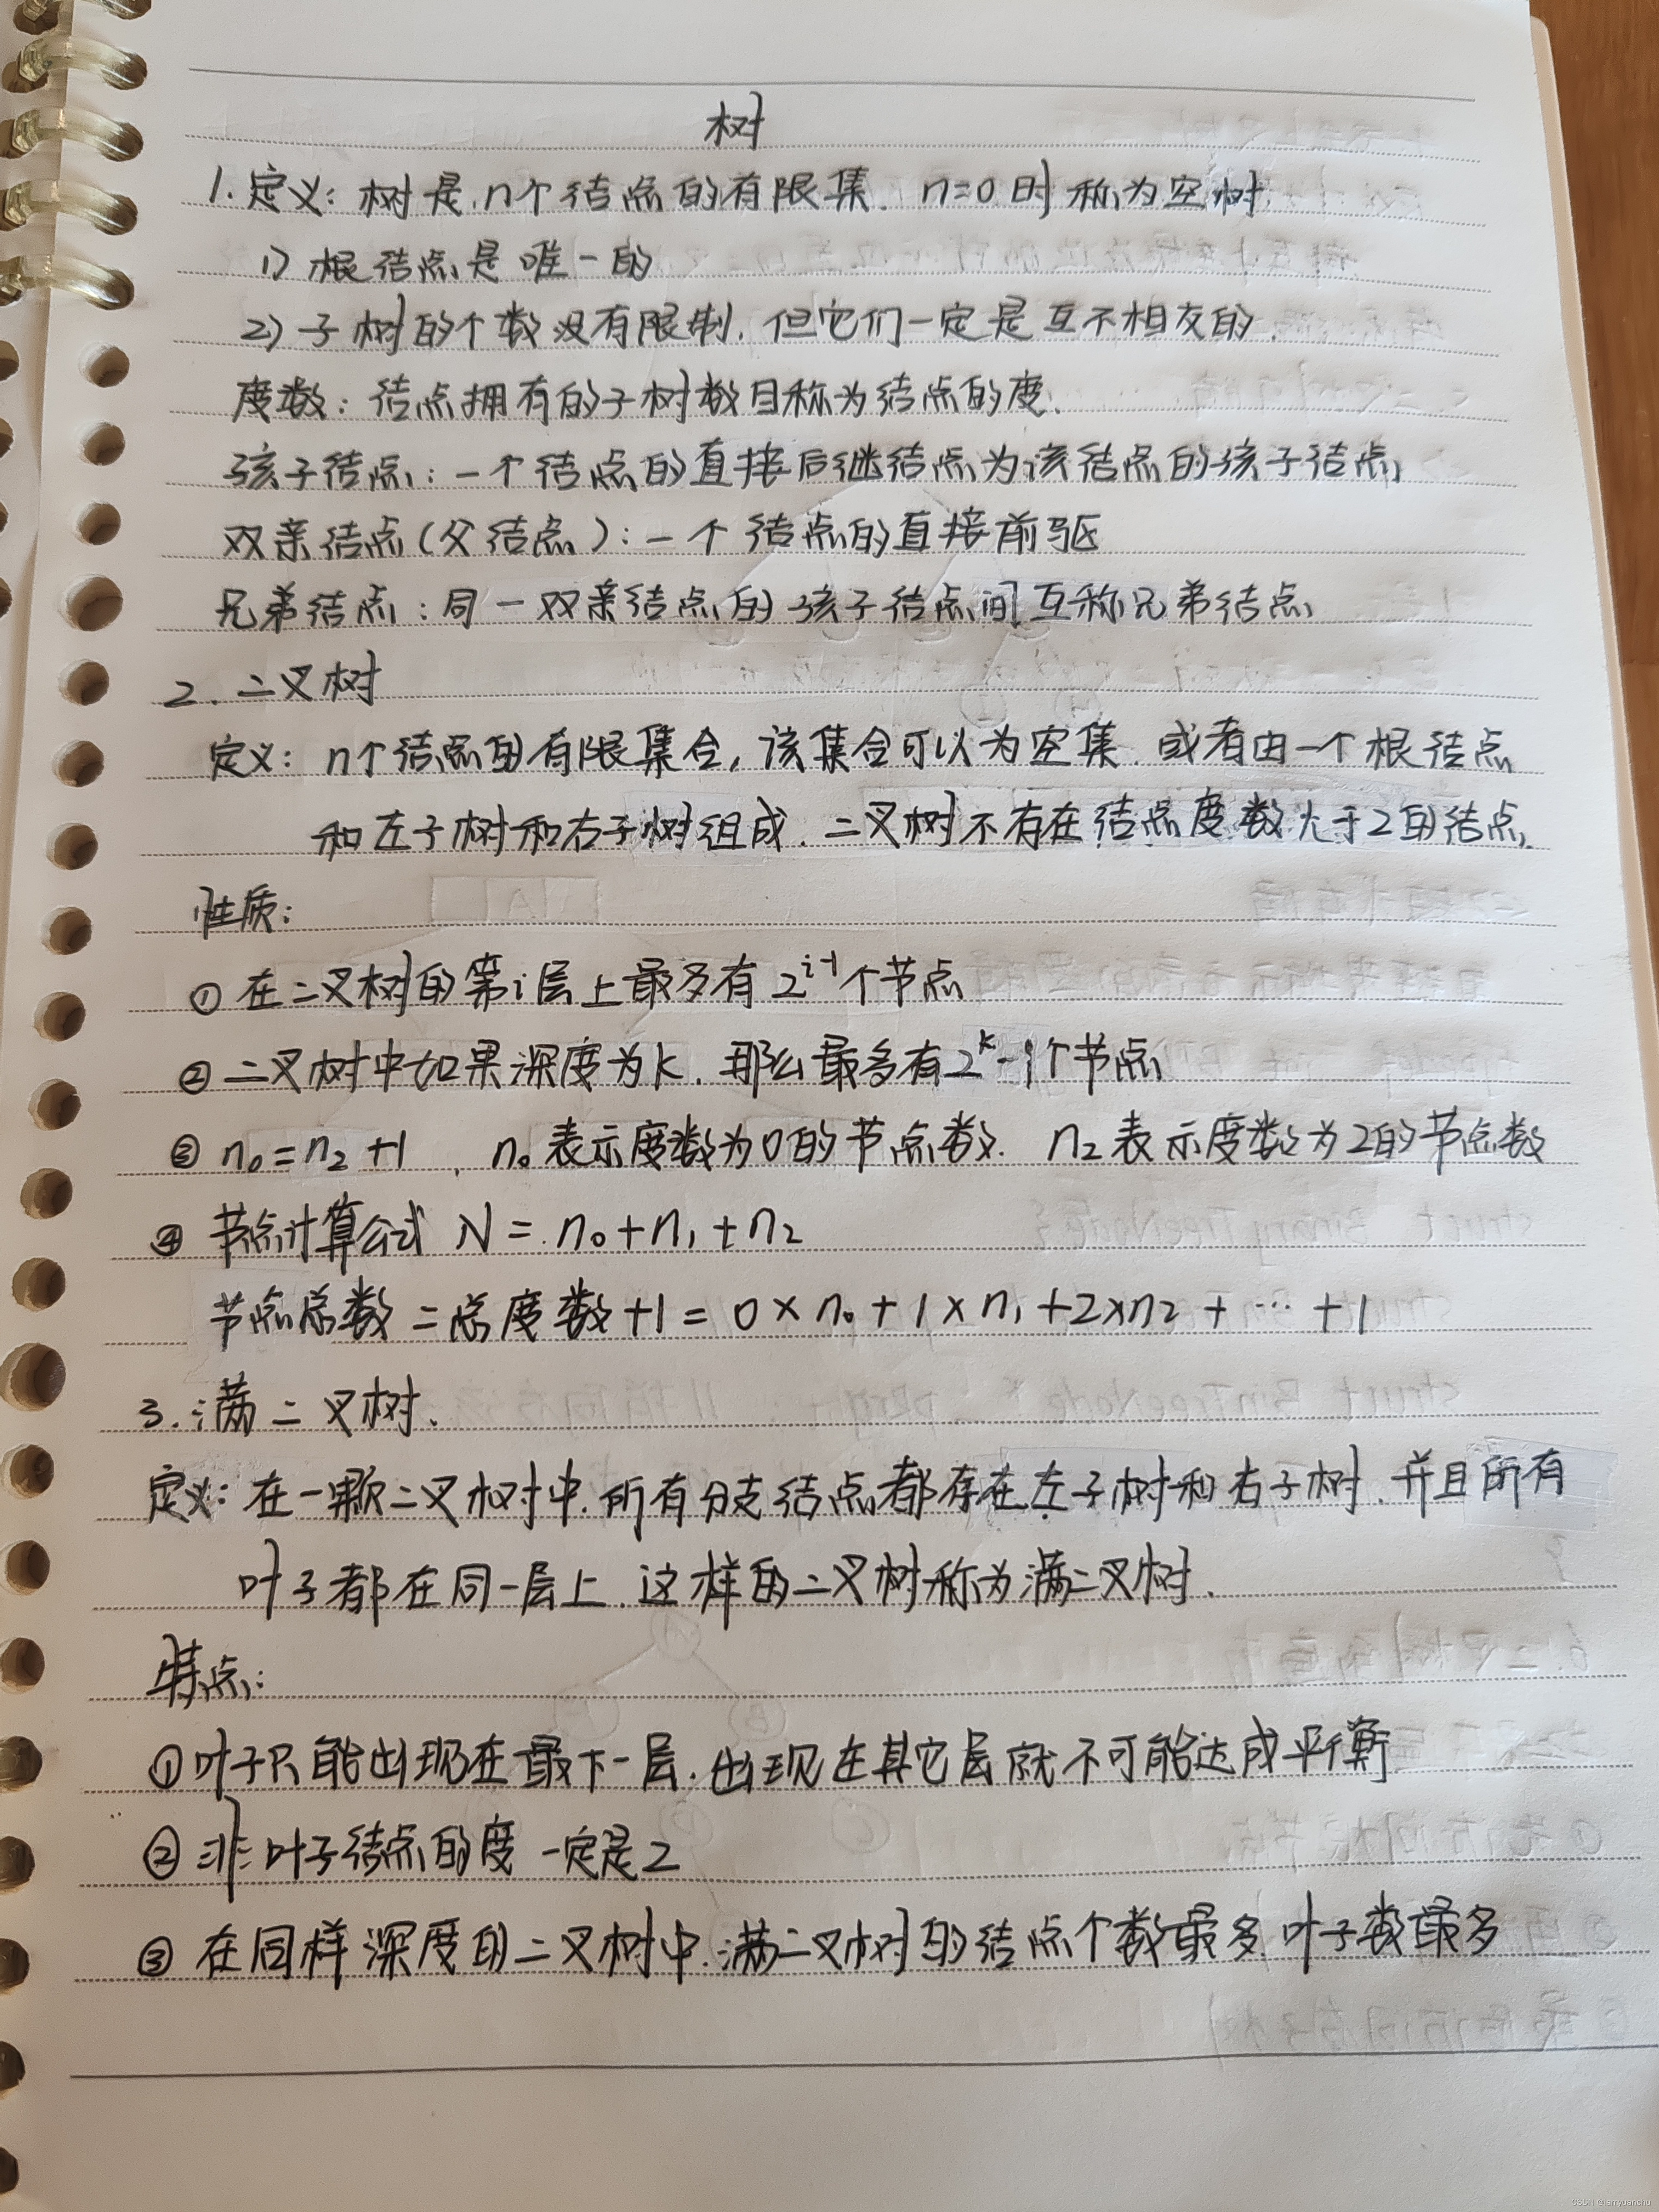 树
1. 定义: 树是n个结点的有限集. n=0时称为空树
1) 根结点是唯一的
2) 子树的个数没有限制, 但它们一定是互不相交的.
度数: 结点拥有的子树数目称为结点的度.
孩子结点: 一个结点的直接后继结点为该结点的孩子结点
双亲结点(父结点): 一个结点的直接前驱
兄弟结点: 同一双亲结点的孩子结点间互称兄弟结点
2. 二叉树
定义: n个结点的有限集合, 该集合可以为空集. 或者由一个根结点
和左子树和右子树组成. 二叉树不存在结点度数大于2的结点.
性质:
① 在二叉树的第i层上最多有2^{i-1}个节点
② 二叉树中如果深度为k. 那么最多有2^k-1个节点
③ n₀=n₂+1, n₀表示度数为0的节点数. n₂表示度数为2的节点数
④ 节点计算公式 N=n₀+n₁+n₂
节点总数=总度数+1=0×n₀+1×n₁+2×n₂+…+1
3. 满二叉树.
定义: 在一颗二叉树中. 所有分支结点都存在左子树和右子树. 并且所有
叶子都在同一层上. 这样的二叉树称为满二叉树.
特点:
① 叶子只能出现在最下一层. 出现在其它层就不可能达成平衡
② 非叶子结点的度一定是2
③ 在同样深度的二叉树中. 满二叉树的结点个数最多. 叶子数最多